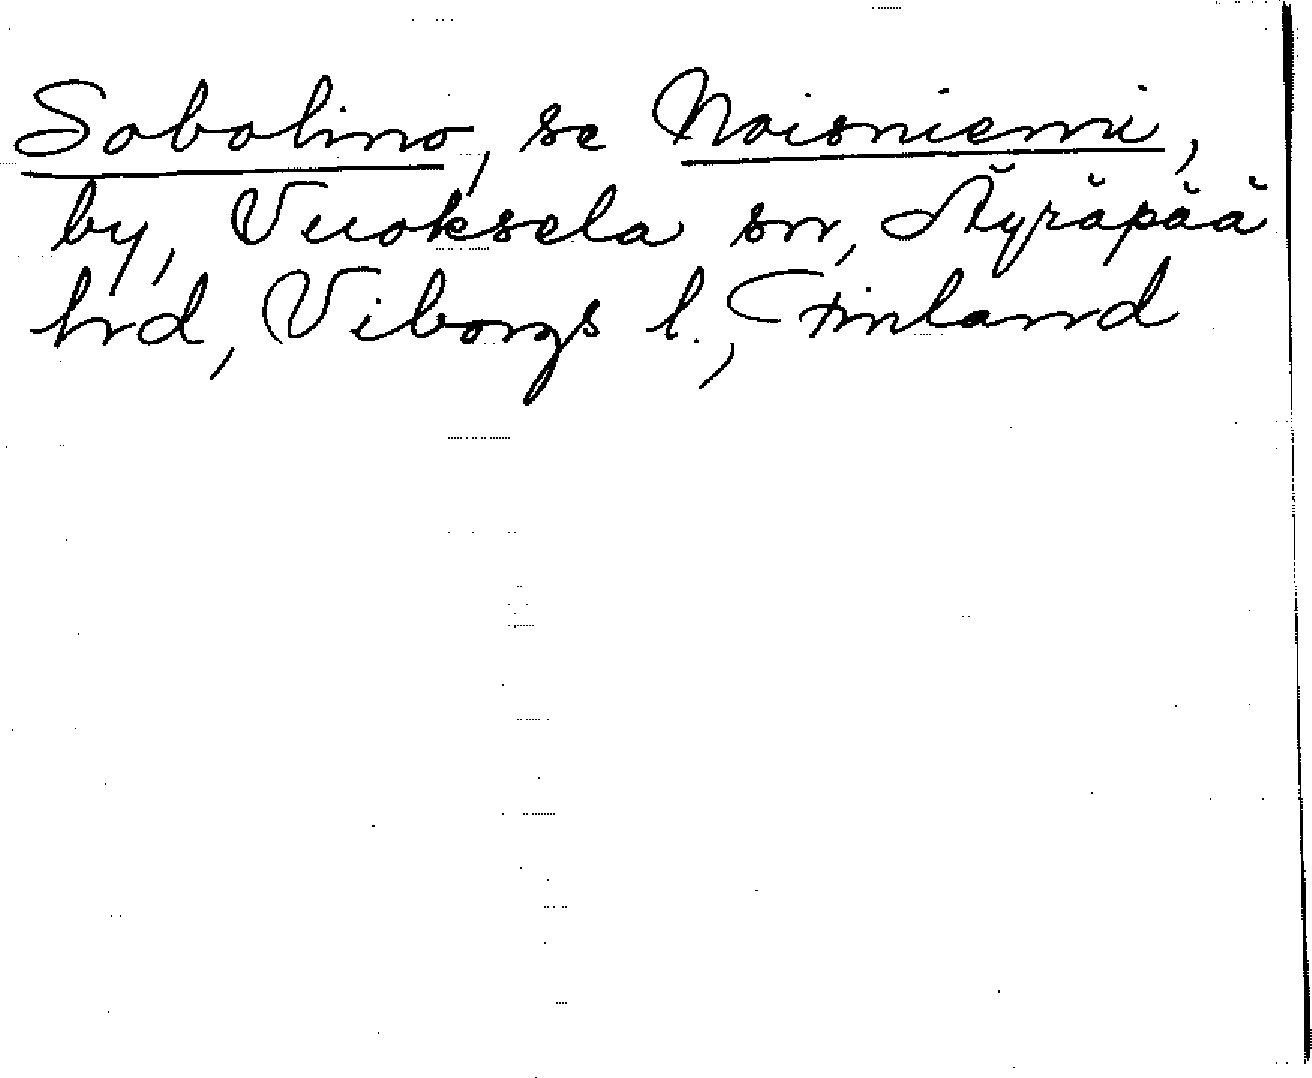 Sobolino, se Noisniemi,
by, Vuoksela sn, Äyräpää
hrd, Viborgs l., Finland